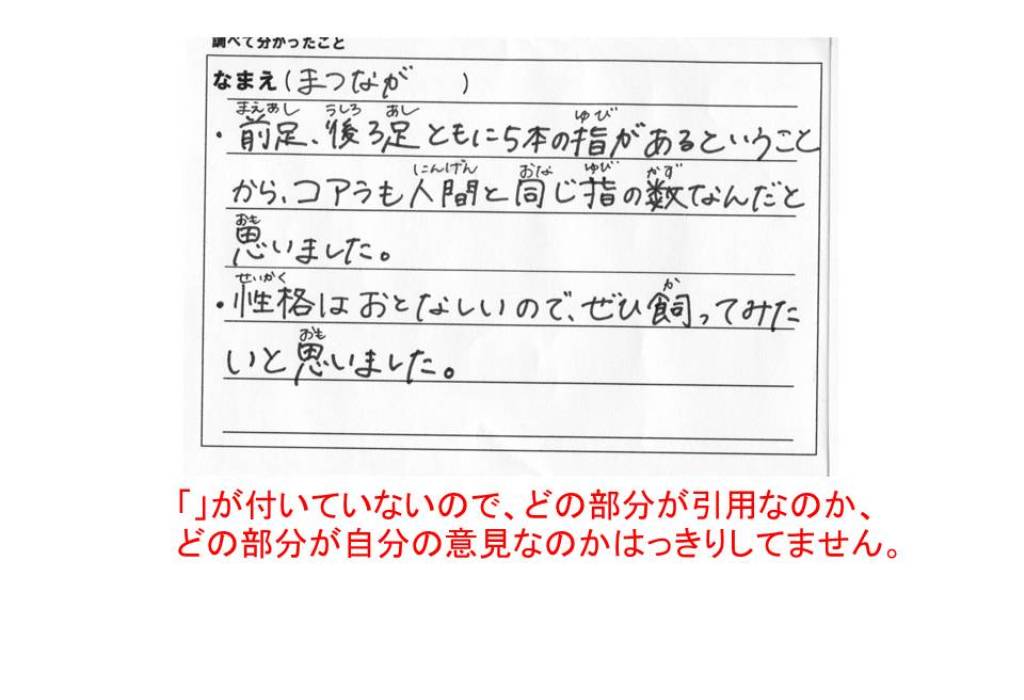 調べて分かったこと
なまえ(まつなが )
まえあし うしろ あし ゆび
・前足、後ろ足ともに5本の指があるということ
にんげん おな ゆび かず
から、コアラも人間と同じ指の数なんだと
おも
思いました。
せいかく か
・性格はおとなしいので、ぜひ飼ってみた
おも
いと思いました。
「」が付いていないので、どの部分が引用なのか、
どの部分が自分の意見なのかはっきりしてません。